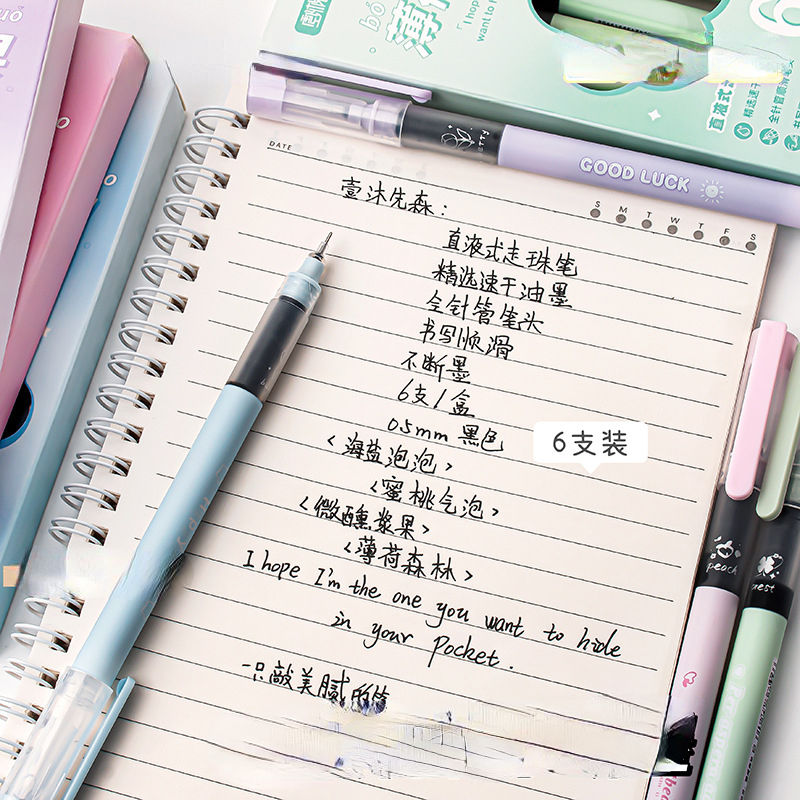 薄荷
I hope
want to
6
直液式
精选速干
全针管顺滑笔头
erry
GOOD LUCK
DATE
S M T W T F S
壹沐先森:
直液式走珠笔
精选速干油墨
全针管笔头
书写顺滑
不断墨
6支1盒
05mm 黑色
6支装
<海盐泡泡>
<蜜桃气泡>
<微醺浆果>
<薄荷森林>
I hope I'm the one you want to hide
in your pocket.
一只敲美腻的笔
peach
rest